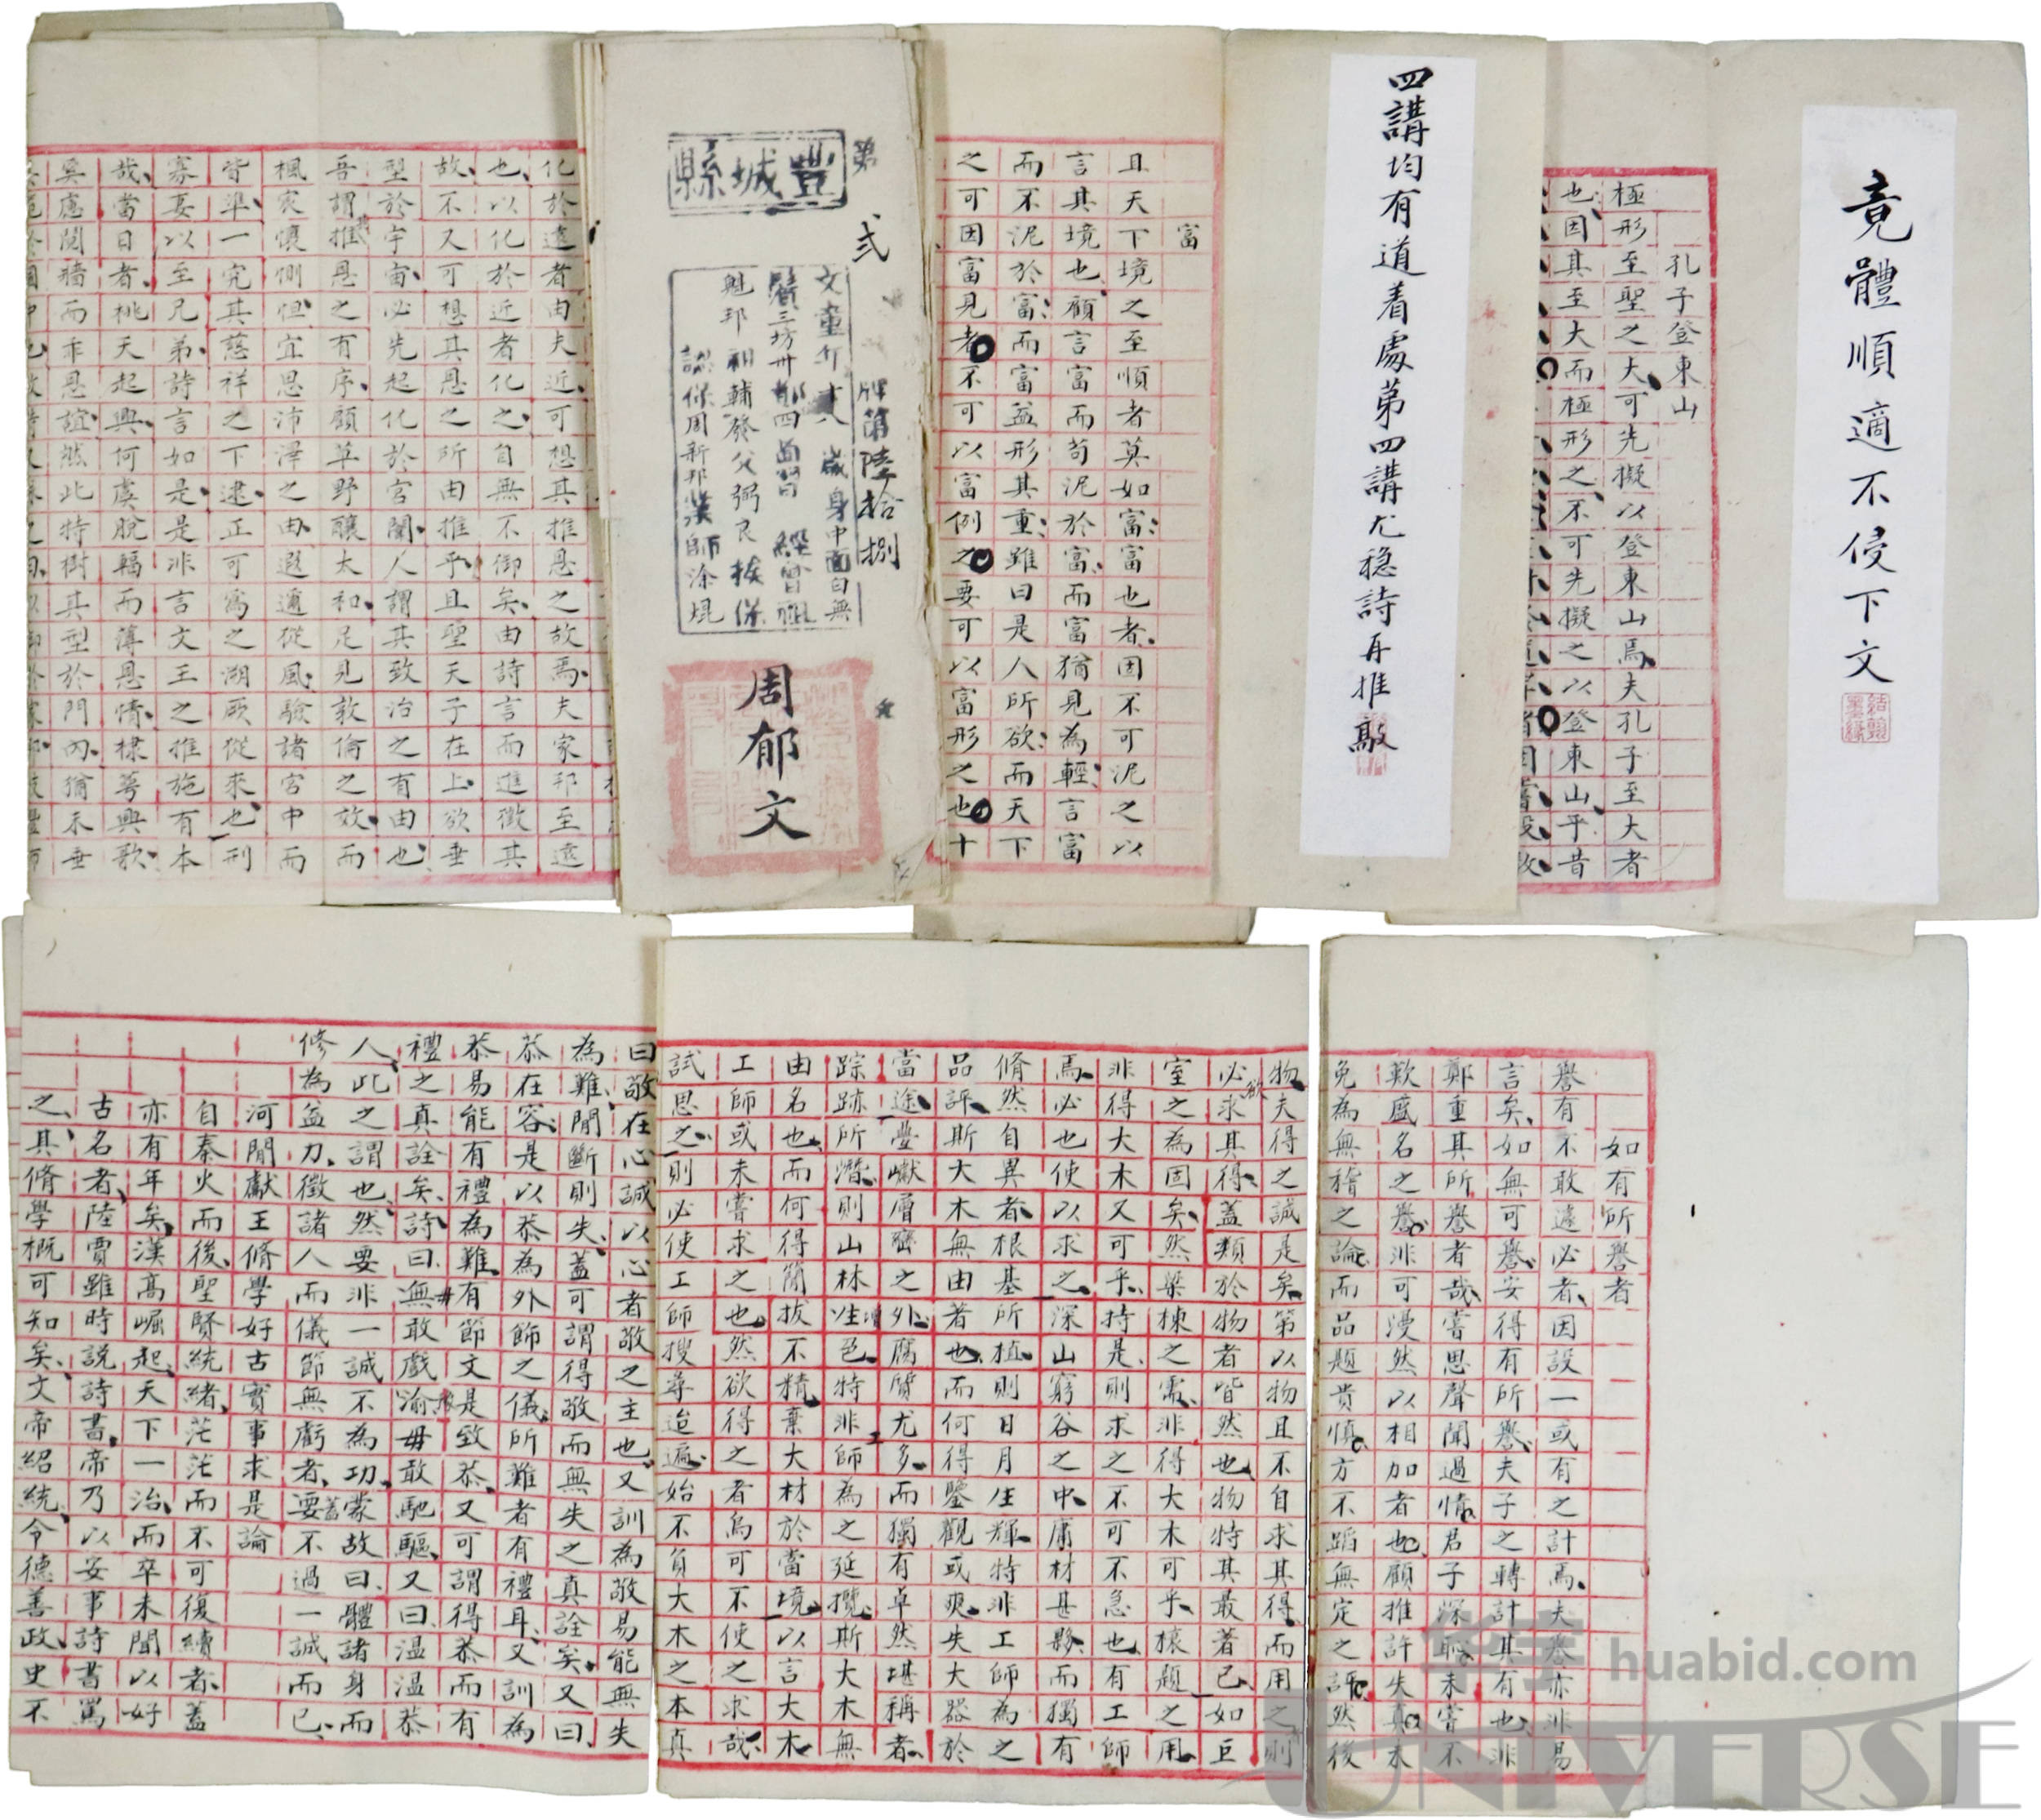 竟體順適不侵下文
孔子登東山
極形至聖之大可先擬以登東山焉夫孔子至大者
也因其至大而極形之不可先擬之以登東山乎昔
四講均有道着處第四講尤穩詩再推敲
富
且天下境之至順者莫如富富也者因不可泥之以
言其境也顧言富而苟泥於富而富猶見為輕言富
而不泥於富而富益形其重雖曰是人所欲而天下
之可因富見者不可以富例之要可以富形之也十
第弍牌第陸拾捌
豐城縣
周郁文
化於遠者由夫近可想其推恩之故焉夫家邦至遠
也以化於近者化之自無不御矣由詩言而進徵其
故不又可想其恩之所由推乎且聖天子在上欲垂
型於宇宙必先起化於宮闈人謂其致治之有由也
吾謂推恩之有序顧草野釀太和足見敦倫之效而
楓宸懷惻怛宜思沛澤之由遐邇從風驗諸宮中而
皆準一究其慈祥之下逮正可寫之溯厥從來也刑
寡妻以至兄弟詩言如是是非言文王之推施有本
哉當日者桃夭起興何虞脫輻而薄恩情棣萼興歌
奚慮鬩牆而乖恩誼然此特樹其型於門內猶未垂
如有所譽者
譽有不敢遽必者因設一或有之計焉夫譽亦非易
言矣如無可譽安得有所譽夫子之轉計其有也非
鄭重其所譽者哉嘗思聲聞過情君子深恥未嘗不
歎盛名之譽非可漫然以相加者也顧推許失真未
免為無稽之論而品題貴慎方不蹈無定之評然後
物夫得之誠是矣第以物且不自求其得而用之則
必欲求其得蓋類於物者皆然也物特其最著已如巨
室之為固矣然梁棟之需非得大木可乎榱題之用
非得大木又可乎持是則求之不可不急也有工師
焉必也使以求之深山窮谷之中庸材甚夥而獨有
脩然自異者根基所植則日月生輝特非工師為之
品評斯大木無由著也而何得鑒觀或爽失大器於
當途豐巘層巒之外腐質尤多而獨有卓然堪稱者
踪跡所潛則山林生色特非工師為之延攬斯大木無
由名也而何得簡拔不精棄大材於當境以言大木
工師或未嘗求之也然欲得之者烏可不使之求哉
試思之則必使工師搜尋迨遍始不負大木之本真
曰敬在心誠以心者敬之主也又訓為敬易能無失
為難閒斷則失蓋可謂得敬而無失之真詮矣又曰
恭在容是以恭為外飾之儀所難者有禮耳又訓為
恭易能有禮為難有節文是致恭又可謂得恭而有
禮之真詮矣詩曰無敢戲渝毋敢馳驅又曰溫溫恭
人此之謂也然要非一誠不為功蒙故曰體諸身而
修為益力徵諸人而儀節無虧者要不過一誠而已
河間獻王脩學好古實事求是論
自秦火而後聖賢統緒茫茫而不可復續者蓋
亦有年矣漢高崛起天下一治而卒未聞以好
古名者陸賈雖時說詩書帝乃以安事詩書罵
之其脩學概可知矣文帝紹統令德善政史不
huabid.com
UNIVERSE